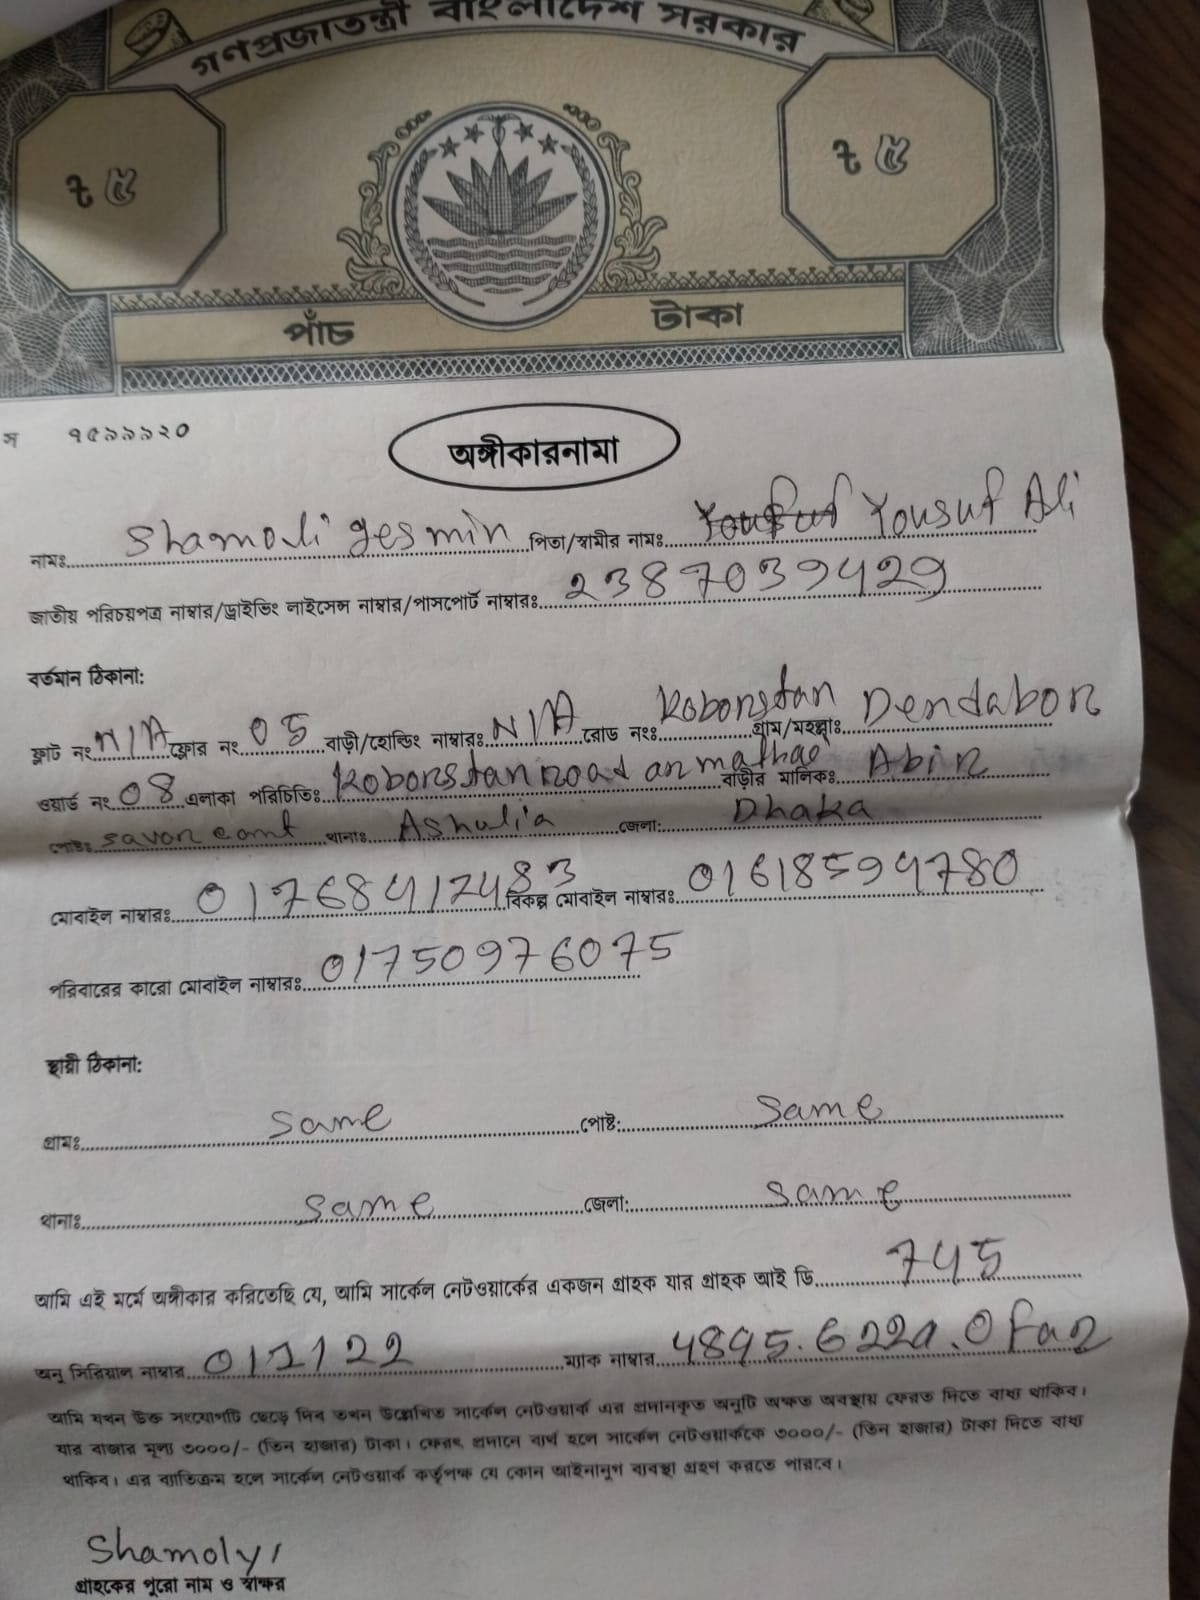 গণপ্রজাতন্ত্রী বাংলাদেশ সরকার
৳ ৫ ৳ ৫
পাঁচ টাকা
স ৭৫৯৯৯২০
অঙ্গীকারনামা
নামঃ Shamoli yesmin পিতা/স্বামীর নামঃ Yousuf Ali
জাতীয় পরিচয়পত্র নাম্বার/ড্রাইভিং লাইসেন্স নাম্বার/পাসপোর্ট নাম্বারঃ 2387039429
বর্তমান ঠিকানা:
ফ্লাট নং N/A ফ্লোর নং 05 বাড়ী/হোল্ডিং নাম্বারঃ N/A রোড নংঃ Kobonstan গ্রাম/মহল্লাঃ Dendabor
ওয়ার্ড নং 08 এলাকা পরিচিতিঃ Kobonstan road বাড়ীর মালিকঃ Abir
পোষ্টঃ savar cant থানাঃ Ashulia জেলা: Dhaka
মোবাইল নাম্বারঃ 01768417483 বিকল্প মোবাইল নাম্বারঃ 01618594780
পরিবারের কারো মোবাইল নাম্বারঃ 01750976075
স্থায়ী ঠিকানা:
গ্রামঃ same পোষ্ট: same
থানাঃ same জেলা: same
আমি এই মর্মে অঙ্গীকার করিতেছি যে, আমি সার্কেল নেটওয়ার্কের একজন গ্রাহক যার গ্রাহক আই ডি 745
অনু সিরিয়াল নাম্বার 011122 ম্যাক নাম্বার 4895.622a.0fa2
আমি যখন উক্ত সংযোগটি ছেড়ে দিব তখন উল্লেখিত সার্কেল নেটওয়ার্ক এর প্রদানকৃত অনুটি অক্ষত অবস্থায় ফেরত দিতে বাধ্য থাকিব।
যার বাজার মূল্য ৩০০০/- (তিন হাজার) টাকা। ফেরৎ প্রদানে ব্যর্থ হলে সার্কেল নেটওয়ার্ককে ৩০০০/- (তিন হাজার) টাকা দিতে বাধ্য
থাকিব। এর ব্যতিক্রম হলে সার্কেল নেটওয়ার্ক কর্তৃপক্ষ যে কোন আইনানুগ ব্যবস্থা গ্রহণ করতে পারবে।
Shamoly
গ্রাহকের পুরো নাম ও স্বাক্ষর